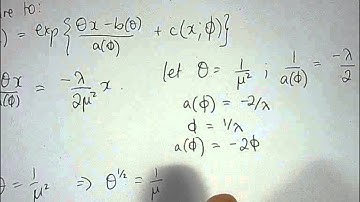 are to:
) = exp{ (θx - b(θ))/a(φ) + c(x;φ) }
θx/a(φ) = -λ/2μ² x.
let θ = 1/μ² ; 1/a(φ) = -λ/2
a(φ) = -2/λ
φ = 1/λ
a(φ) = -2φ
θ = 1/μ² ⇒ θ^{1/2} = 1/μ